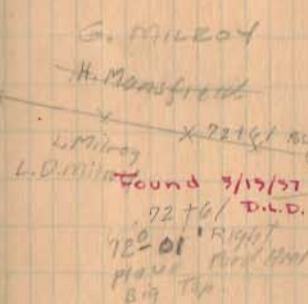 G. MILROY
H. Mansfield
72+61
L. Milroy
L.D. Milroy
Found 3/15/57
72+61 D.L.D.
72°-01' Right
Big